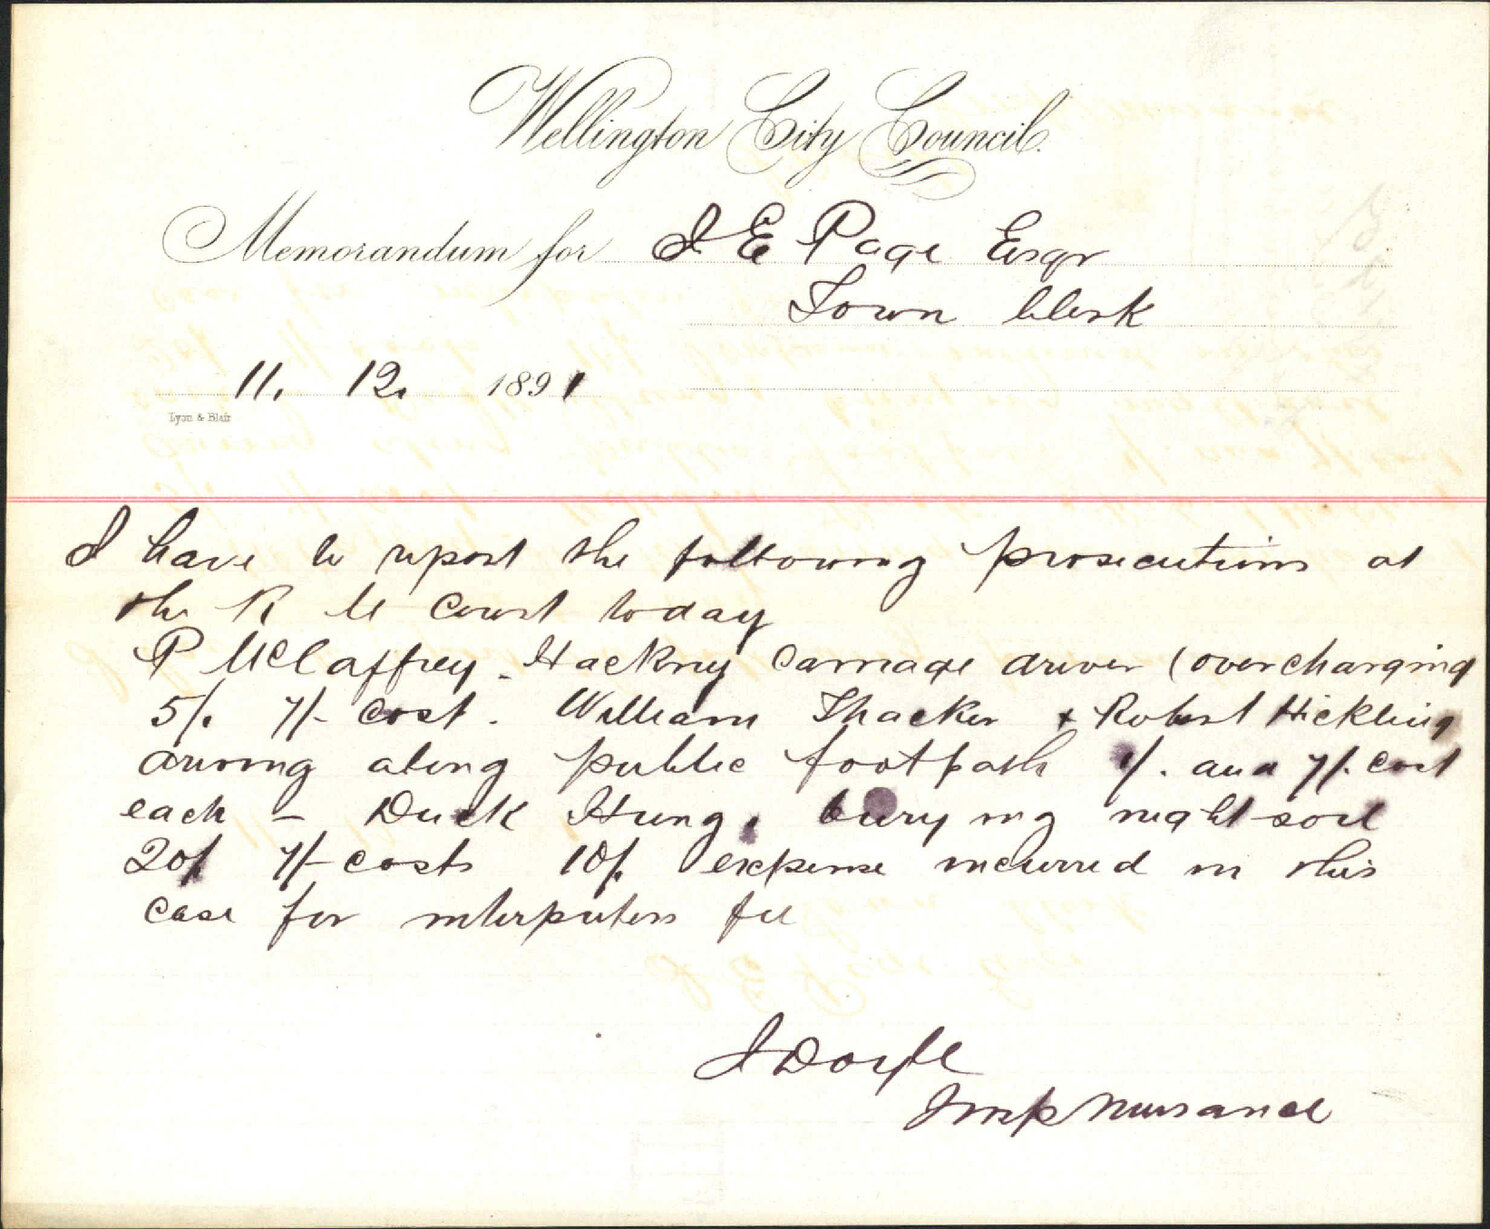 Wellington City Council.
Memorandum for J E Page Esqr
Town Clerk
11. 12. 1891
Lyon & Blair
I have to report the following prosecutions at
the R M Court today
P McCaffrey. Hackney Carriage driver (overcharging
5/. 7/- Cost. William Thacker & Robert Hickling
driving along public footpath 1/. and 7/. Cost
each - Duck Hung, burying night-soil
20/ 7/- costs 10/. expense incurred in this
case for interpreters fee
J Doyle
Insp Nuisance